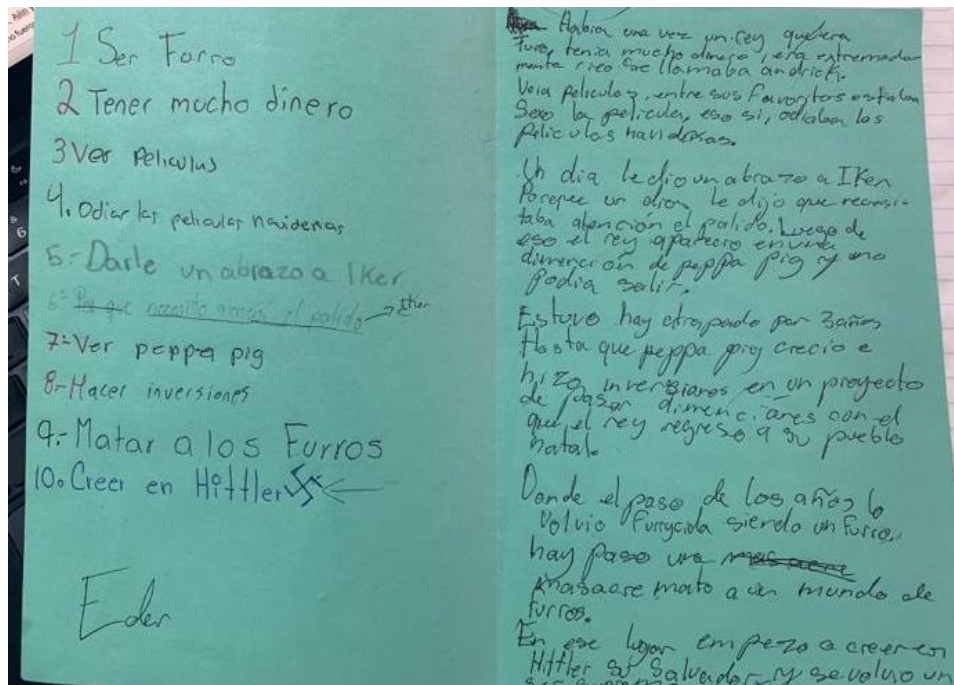 1 Ser Forro
2 Tener mucho dinero
3 Ver Peliculas
4. Odiar las peliculas navidenas
5-Darle un abrazo a IKer
6- Por que necesito el palido → Iker
7-Ver peppa pig
8-Hacer inversiones
9.-Matar a los Furros
10. Creer en Hittler
Eder
Habia una vez un rey que era
furro, tenia mucho dinero, era extremada
mente rico se llamaba andrick.
Veia peliculas, entre sus favoritas estaban
la pelicula, eso si, odiaba las
peliculas
Un dia le dio un abrazo a IKer
Porque un dia le dijo que necesi-
taba atención el palido. Luego de
eso el rey aparecio en una
dimención de peppa pig y no
podia salir.
Estuvo hay atrapado por 3 años
Hasta que peppa pig crecio e
hizo inversiones en un proyecto
de pasar dimenciones con el
que el rey regreso a su pueblo
natal.
Donde el paso de los años lo
volvio Furrycida siendo un Furro,
hay paso una
masacre mato a un mundo de
furros.
En ese lugar empezo a creer en
Hittler su Salvador y se volvio un